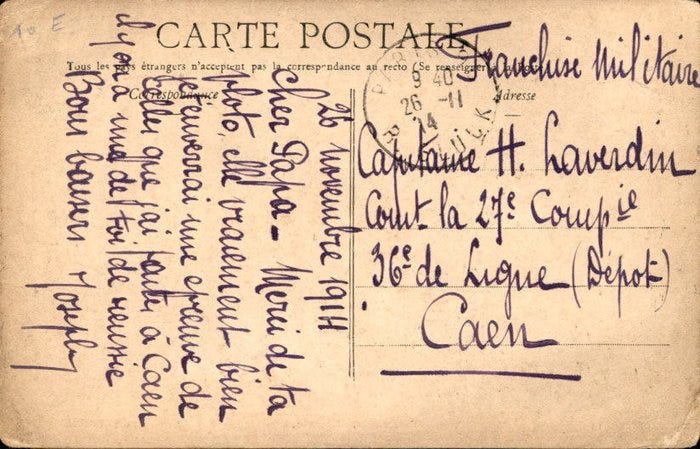 CARTE POSTALE
Tous les pays étrangers n'acceptent pas la correspondance au recto (Se renseigner
Correspondance
Adresse
Franchise Militaire
PARIS
9 40
26 -11
14
Capitaine H. Laverdin
Com.t la 27e Comp ie
36e de Ligne (Dépot)
Caen
26 novembre 1914
Cher Papa - Merci de ta
photo, elle vraiement bien
enverrai une epreuve de
celles que j'ai faites à Caen
il y en a une de toi de reussie
Bons baisers Joseph